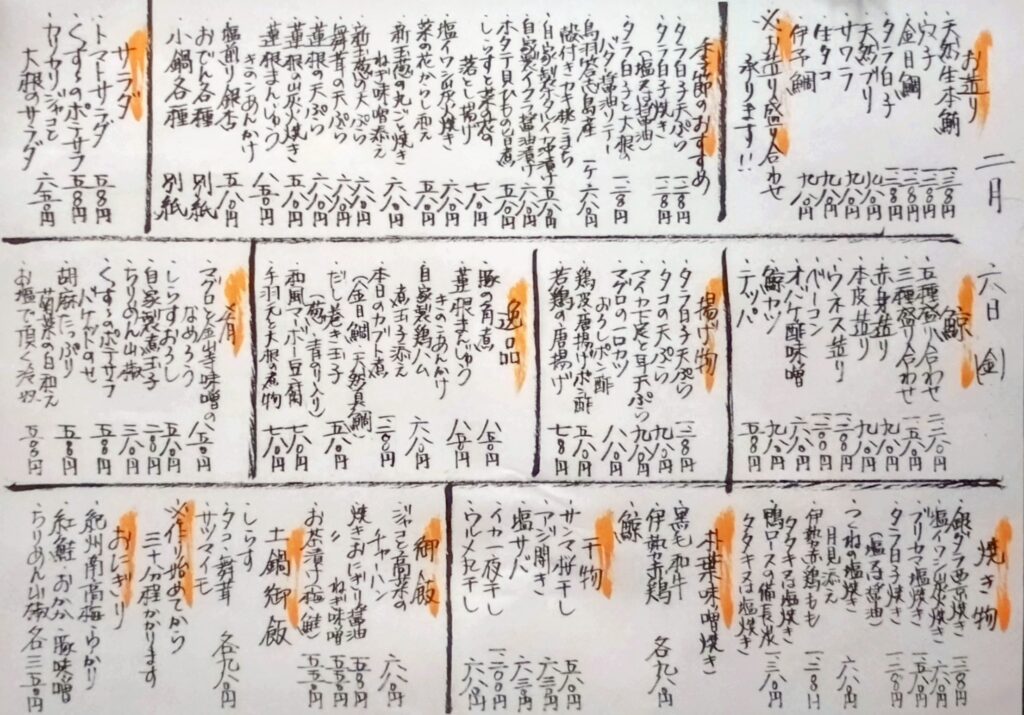 二月
六日(金)
お造り
・天然生本鮪 一二八〇円
・穴子 一二八〇円
・金目鯛 一二八〇円
・タラ白子 一二八〇円
・天然ブリ
・サワラ 九八〇円
・生タコ 九八〇円
・伊予鯛 九八〇円
※お造り盛り合わせ
承ります!!
季節のおすすめ
・タラ白子天ぷら 一二八〇円
・タラ白子焼き 一二八〇円
(塩 or 醤油)
・タラ白子と大根の
バター醤油ソテー 一二八〇円
・鳥羽答志島産
殻付きカキ桃こまち 一ケ 六八〇円
・自家製イクラ醤油漬け
・ホタテ貝ひもの旨煮 五八〇円
・しらすと菜の花の
落とし揚げ 七八〇円
・塩イワシ炭火焼き 六八〇円
・菜の花からし和え 五八〇円
・新玉葱の丸ごと焼き
ねぎ味噌添え 六八〇円
・新玉葱の天ぷら
・舞茸の天ぷら 六八〇円
・蓮根の天ぷら 六八〇円
・蓮根の炭火焼き 五八〇円
・蓮根まんじゅう
きのこあんかけ 八五〇円
・塩煎り銀杏 五八〇円
・おでん各種 別紙
・小鍋各種 別紙
サラダ
・トマトサラダ 五五〇円
・くずし〜のポテサラ 五八〇円
・カリカリジャコと
大根のサラダ 六五〇円
鯨
・五種盛り合わせ
・三種盛り合わせ
・赤身造り
・本皮造り 九八〇円
・ウネス造り 九八〇円
・ベーコン
・オバケ酢味噌 六八〇円
・鯨カツ 九八〇円
・テッパ 五八〇円
揚げ物
・タラ白子天ぷら 一二八〇円
・タコの天ぷら 九八〇円
・マイカ七尺と耳天ぷら 七八〇円
・マグロの一口カツ
おろしポン酢 八八〇円
・鶏皮唐揚げポン酢 五八〇円
・若鶏の唐揚げ 七八〇円
逸品
・豚の角煮 八五〇円
・蓮根まんじゅう
きのこあんかけ 八五〇円
・自家製鶏ハム
煮玉子添え 六八〇円
・本日のカブト煮
(金目鯛・天然真鯛)
・だし巻き玉子 五八〇円
(葱・青のり入り)
・西風マーボー豆腐 七八〇円
・手羽元と大根の煮物 七八〇円
肴
・マグロと金山寺味噌の
なめろう 八五〇円
・しらすおろし 五八〇円
・自家製煮玉子 二八〇円
・ちりめん山椒 三八〇円
・くずし〜のポテサラ
バケットのせ 五八〇円
・胡麻たっぷり
菊菜の白和え 五八〇円
・お塩で頂く冷奴 五八〇円
焼き物
・銀ダラ西京焼き 一二八〇円
・塩イワシ炭火焼き 六八〇円
・ブリカマ塩焼き
・タラ白子焼き 一二八〇円
(塩 or 醤油)
・つくねの塩焼き
月見添え 六八〇円
・伊勢赤鶏もも
タタキ or 塩焼き 一二八〇円
・鴨ロースの備長炭
タタキ or 塩焼き 一三八〇円
朴葉味噌焼き
・黒毛和牛
・伊勢赤鶏
・鯨 各九八〇円
干物
・サンマ桜干し 五八〇円
・アジ開き 六三〇円
・塩サバ 六三〇円
・イカ一夜干し
・ウルメ丸干し 六八〇円
御飯
・ジャコと高菜の
チャーハン 六八〇円
・焼きおにぎり醤油 五八〇円
〃 ねぎ味噌 五五〇円
・お茶漬け(梅・鮭) 五五〇円
土鍋御飯
・しらす
・タコ・舞茸
・サツマイモ 各九八〇円
※作り始めてから
三十分程かかります
おにぎり
・紀州南高梅・ゆかり
・紅鮭・おかか・豚味噌
・ちりめん山椒 各三五〇円